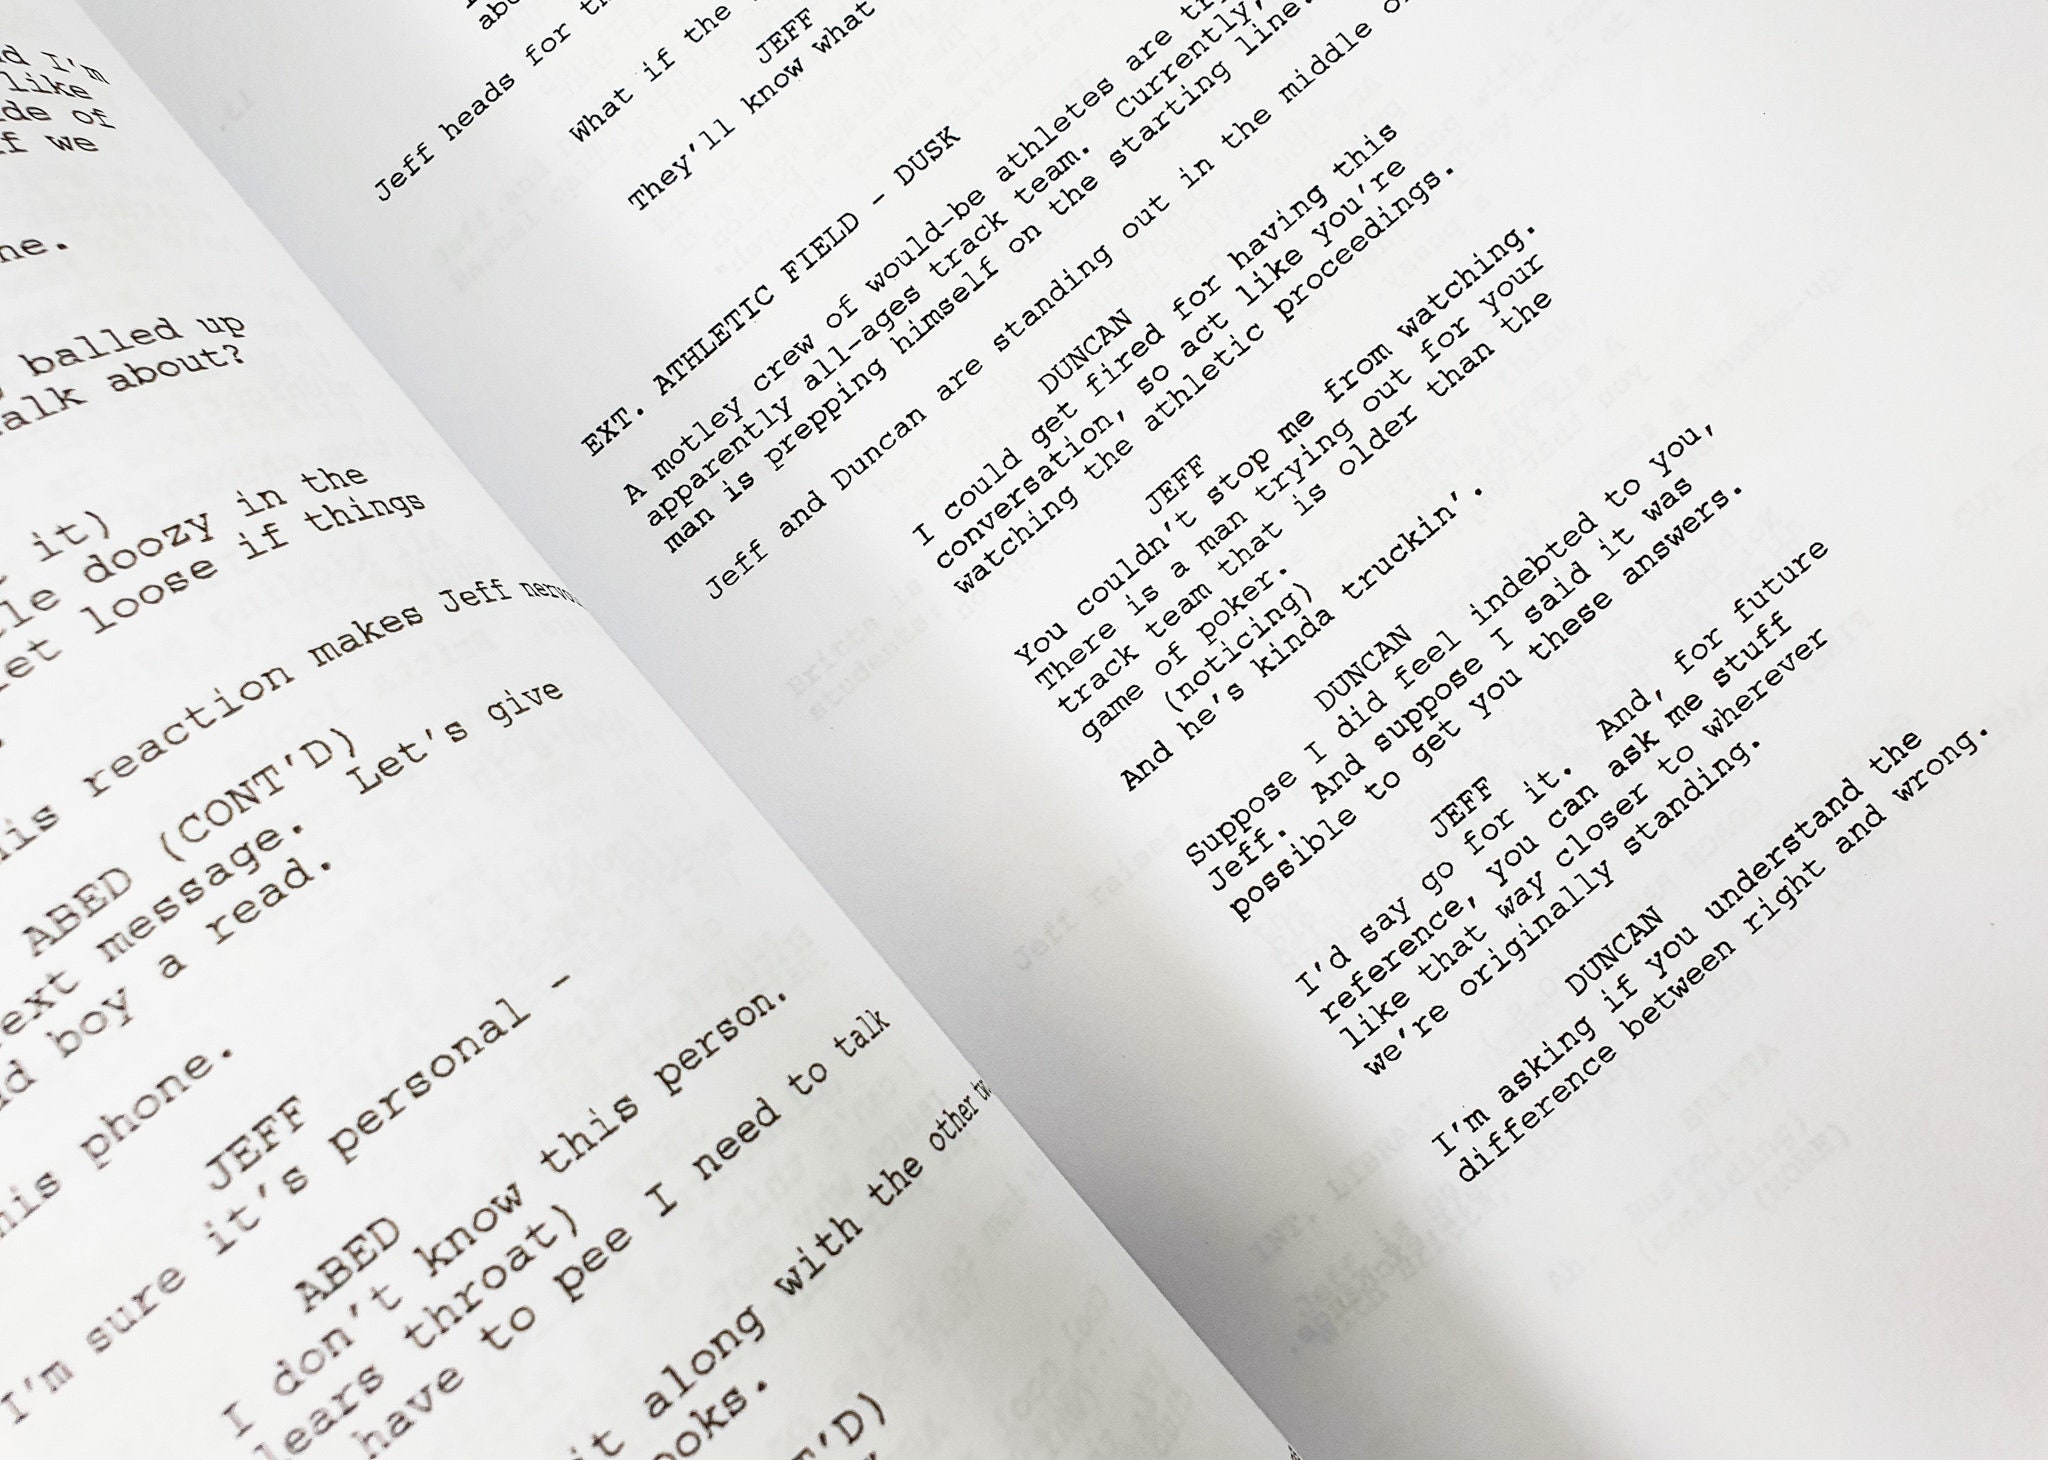 d I'm
like
de of
if we
ne.
balled up
alk about?
it)
le doozy in the
et loose if things
his reaction makes Jeff
ABED (CONT'D)
ext message. Let's give
d boy a read.
his phone.
JEFF
I'm sure it's personal -
ABED
I don't know this person.
lears throat)
have to pee I need to talk
it along with the other
ooks.
T'D)
Jeff heads for
What if the
JEFF
They'll know what
EXT. ATHLETIC FIELD - DUSK
A motley crew of would-be athletes are
apparently all-ages track team. Currently,
man is prepping himself on the starting line.
Jeff and Duncan are standing out in the middle
DUNCAN
I could get fired for having this
conversation, so act like you're
watching the athletic proceedings.
JEFF
You couldn't stop me from watching.
There is a man trying out for your
track team that is older than the
game of poker.
(noticing)
And he's kinda truckin'.
DUNCAN
Suppose I did feel indebted to you,
Jeff. And suppose I said it was
possible to get you these answers.
JEFF
I'd say go for it. And, for future
reference, you can ask me stuff
like that way closer to wherever
we're originally standing.
DUNCAN
I'm asking if you understand the
difference between right and wrong.